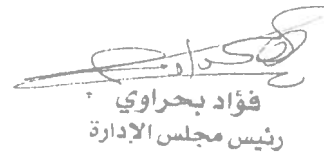 فؤاد بحراوي
رئيس مجلس الإدارة